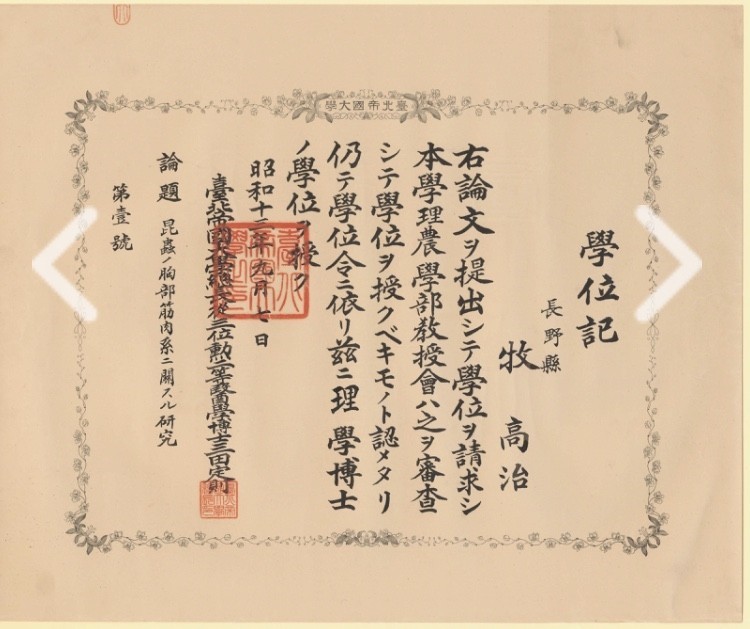 學大國帝北臺
學位記
長野縣
牧 高治
右論文ヲ提出シテ學位ヲ請求シ
本學理農學部教授會ハ之ヲ審査
シテ學位ヲ授クベキモノト認メタリ
仍テ學位令ニ依リ茲ニ理學博士
ノ學位ヲ授ク
昭和十三年九月七日
臺北帝國大學總長從三位勲二等醫學博士三田定則
論題 昆蟲ノ胸部筋肉系ニ關スル研究
第壹號